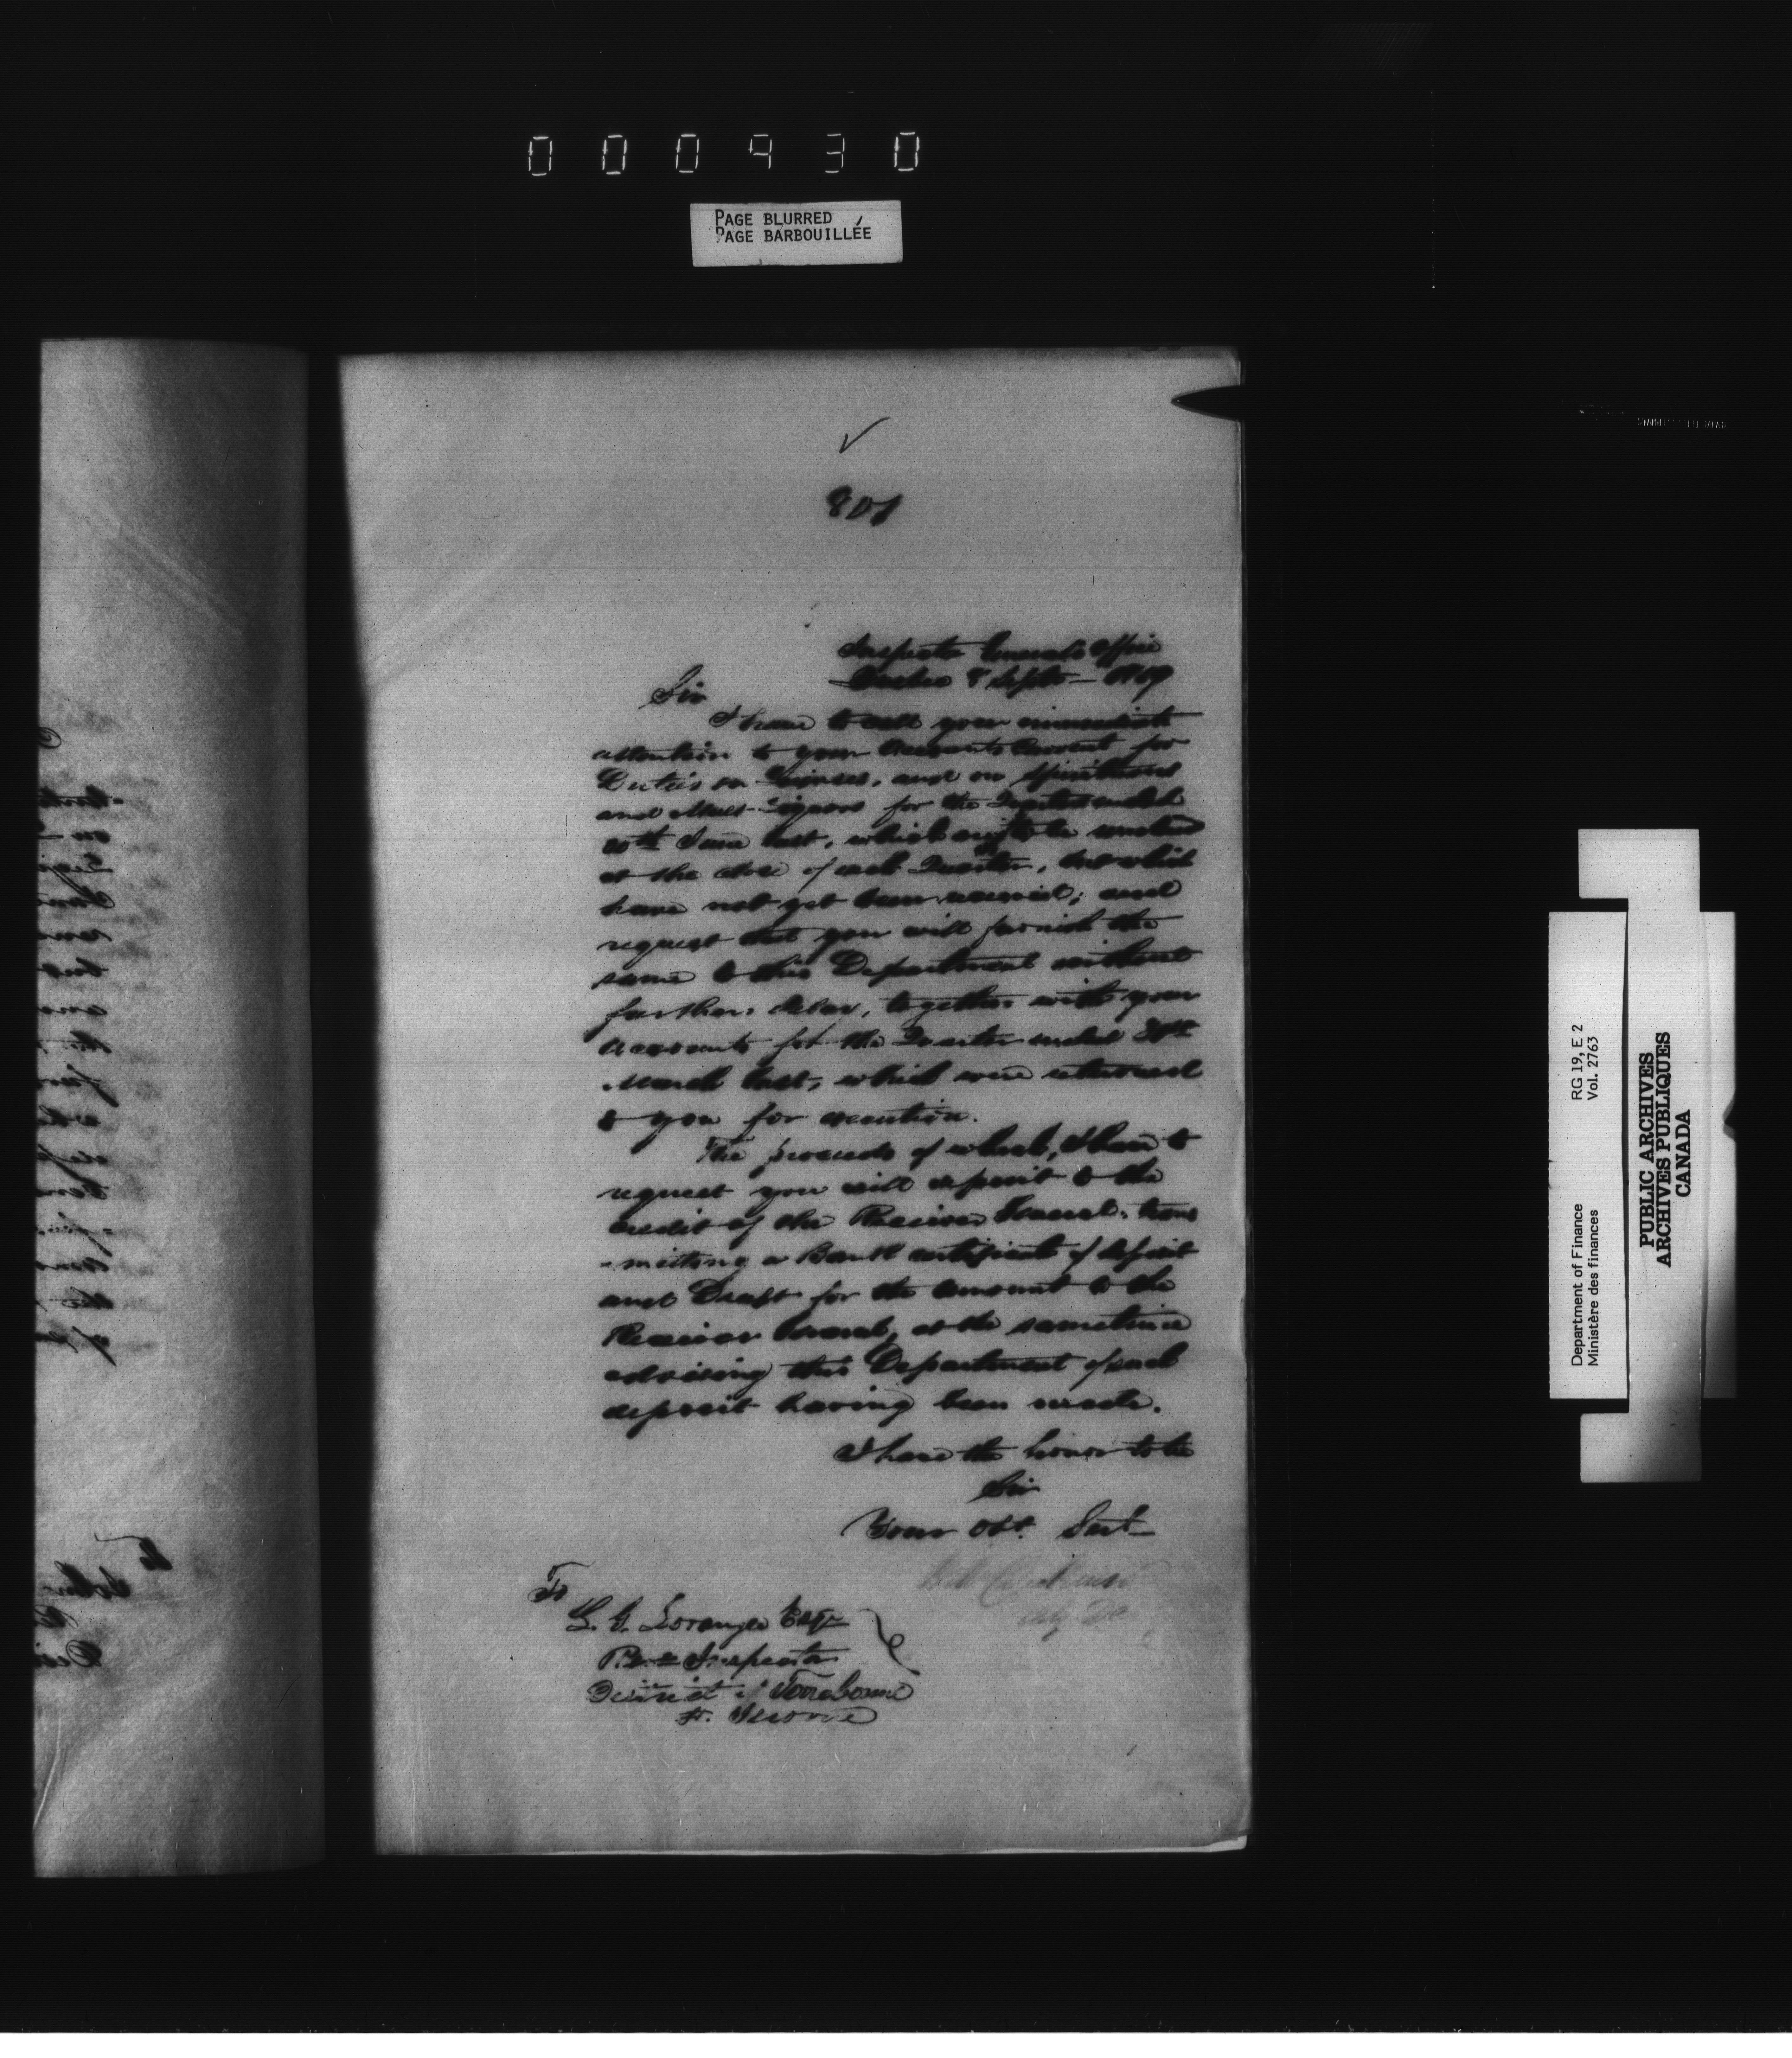 000930
PAGE BLURRED
PAGE BARBOUILLÉE
801
Inspector General's Office
Quebec 8 Septr 1859
Sir
I have to call your immediate
attention to your Accounts Current for
Duties on Licenses, and on Spirituous
and Malt Liquors for the Quarter ended
30th June last, which ought to be rendered
at the close of each Quarter, but which
have not yet been received; and
request that you will furnish the
same to this Department without
further delay, together with your
Accounts for the Quarter ended 31st
March last, which were returned
to you for execution.
The proceeds of which, I have to
request you will deposit to the
credit of the Receiver General, trans
-mitting a Bank certificate of deposit
and Draft for the amount to the
Receiver General, at the same time
advising this Department of such
deposit having been made.
I have the honor to be
Sir
Your Obt. Servt
To
L. G. Loranger Esqr
Rev. Inspector
District of Terrebonne
St. Jerome
Department of Finance RG 19, E 2
Ministère des finances Vol. 2763
PUBLIC ARCHIVES
ARCHIVES PUBLIQUES
CANADA